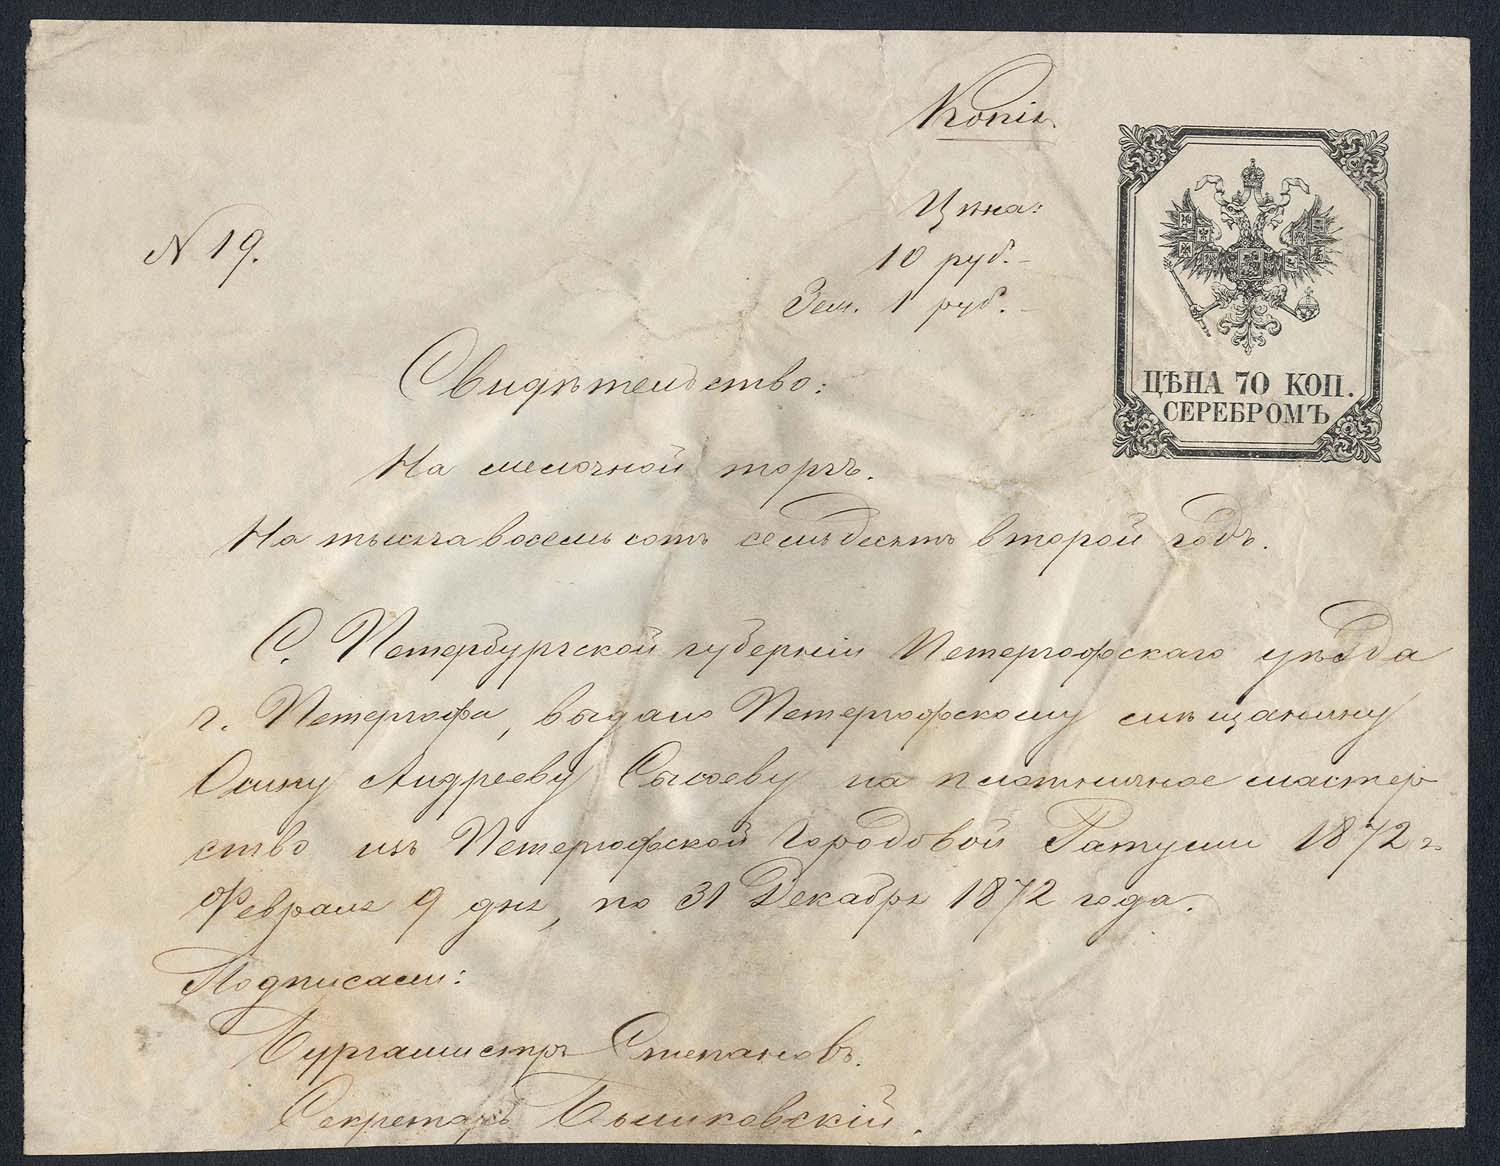 Копія.
Цѣна:
10 руб. -
Зем. 1 руб. -
N 19.
ЦѢНА 70 КОП.
СЕРЕБРОМЪ
Свидѣтельство:
На мелочной торгъ.
На тысяча восемьсотъ семьдесятъ второй годъ.
С. Петербургской губерніи Петергофскаго уѣзда
г. Петергофа, выдано Петергофскому мѣщанину
Осипу Андрееву Сысоеву на плотничное мастер
ство изъ Петергофской Городовой Ратуши 1872 г.
Февраля 9 дня, по 31 Декабря 1872 года.
Подписали:
Бургамистръ Степановъ.
Секретарь